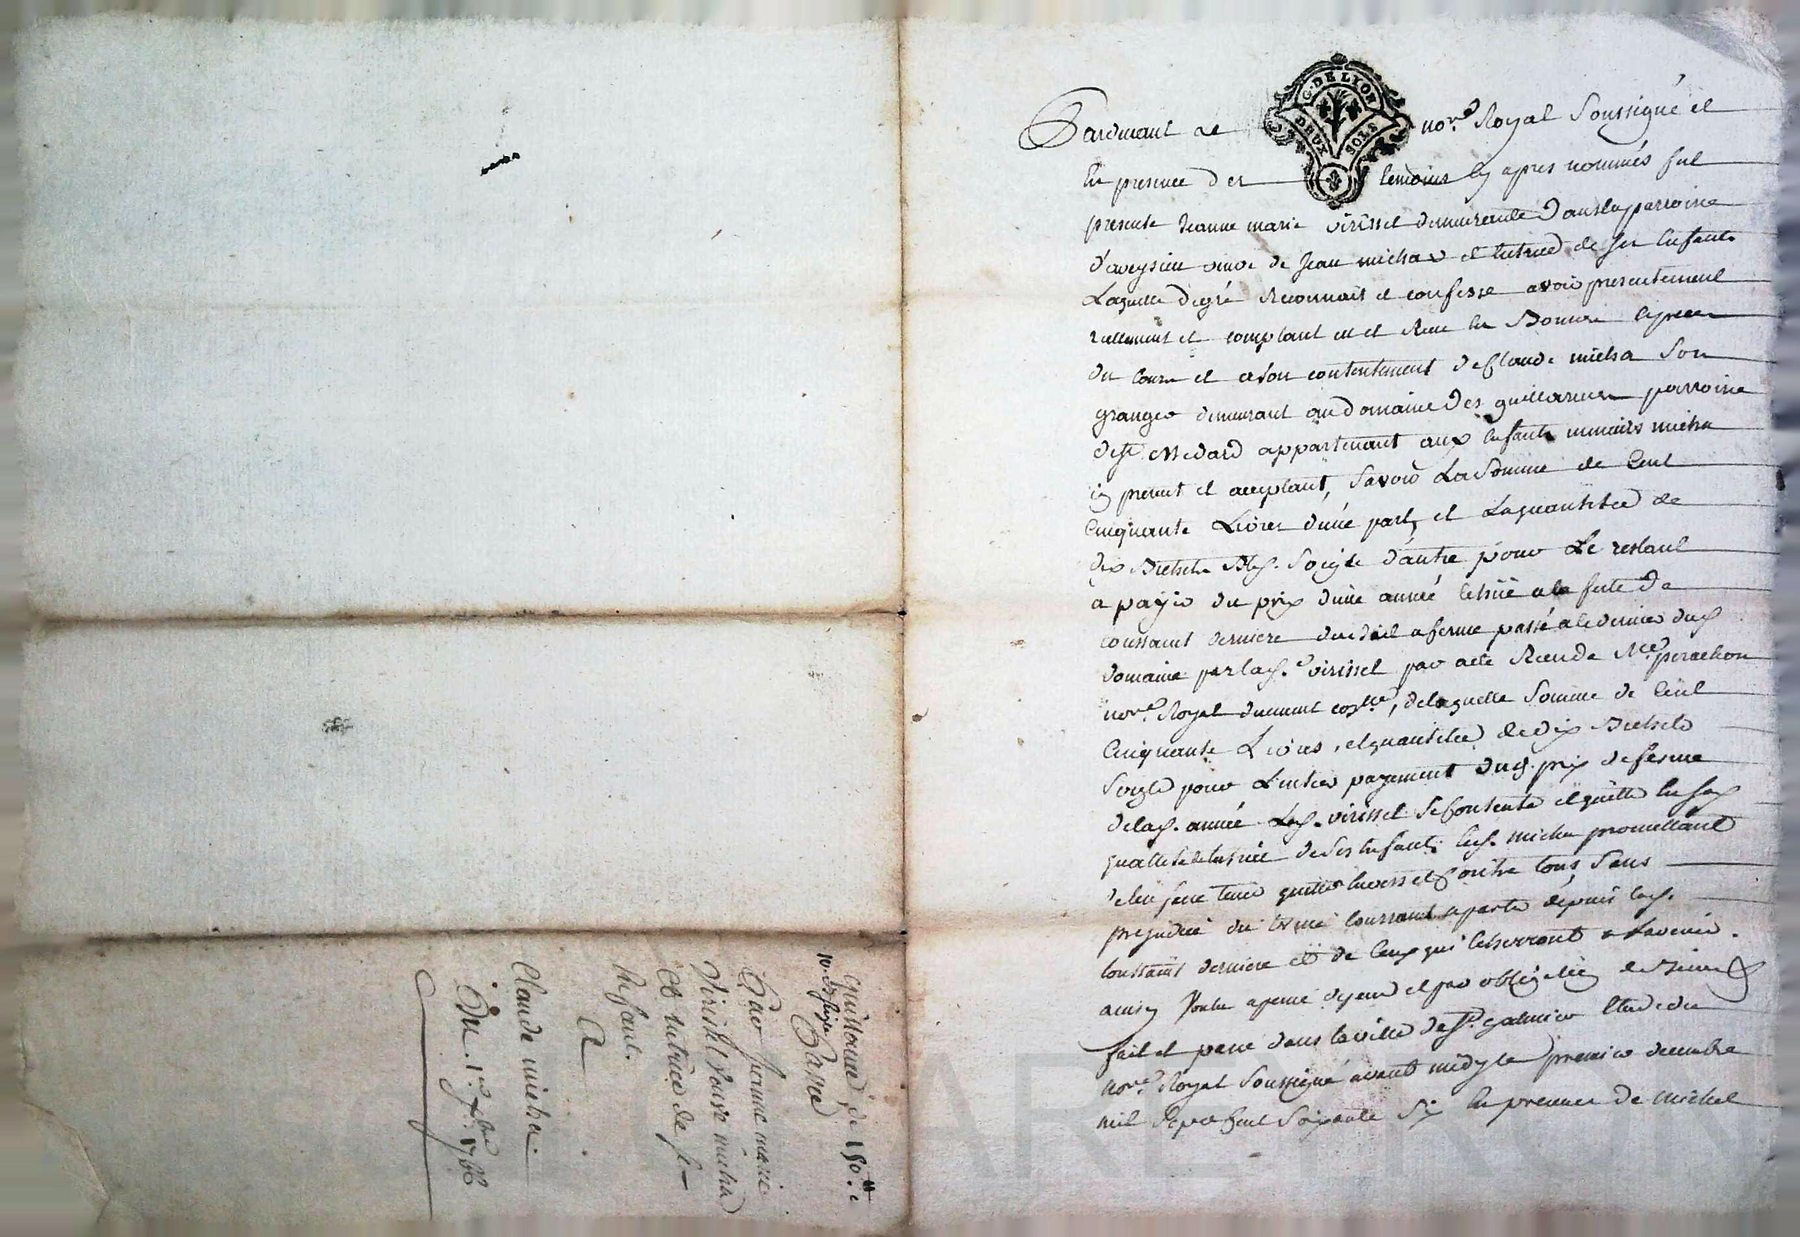 G. DE LYON
DEUX SOLS
Pardevant Le nore. Royal Soussigné et
En presence des temoins cy apres nommés fut
presente Jeanne marie virissel demeurante dans la parroisse
d'aveysieu veuve de Jean micha et tutrice de ses Enfants
Laquelle degré Reconnait et confesse avoir presentement
reellement et comptant eu et Reçu En Bonnes Especes
du cours et a son contentement de Claude micha son
granger demeurant au domaine des guillermes parroisse
de St. Medard appartenant aux Enfants mineurs micha
cy present et acceptant, Savoir La Somme de Cent
Cinquante Livres d'une part, et La quantitée de
dix Bichets Bled. Soigle d'autre pour Le restant
a payer du prix d'une année Echüe a la fete de
toussaint derniere du Bail a ferme passé a ce dernier dud.
domaine par lad. virissel par acte Recu de Me. perachon
nore. Royal duement collé, de laquelle Somme de Cent
Cinquante Livres, et quantitée de dix Bichets
Soigle pour L'entier payement dud. prix de ferme
de lad. année Lad. virissel se contente et quitte En sad.
qualité de tutrice de ses Enfants led. micha promettant
de l'en faire tenir quitte Envers et Contre tous Sans
prejudice du terme Courrant a parti depuis lad.
toussaint derniere et de Ceux qui Echerront a Lavenir.
ainsy voulu a peine depend et par obligation de Biens &
fait et passé dans la ville de St. galmier Etude du
nore. Royal Soussigné avant midy le premier decembre
mil Sept Cent Soixante Six En presence de michel
Quittance de 150ll et
10. B. Soigle Passée
Par Jeanne marie
Virissel veuve micha
Et tutrice de ses
Enfants
A
Claude micha
Du 1er. Xbre 1766